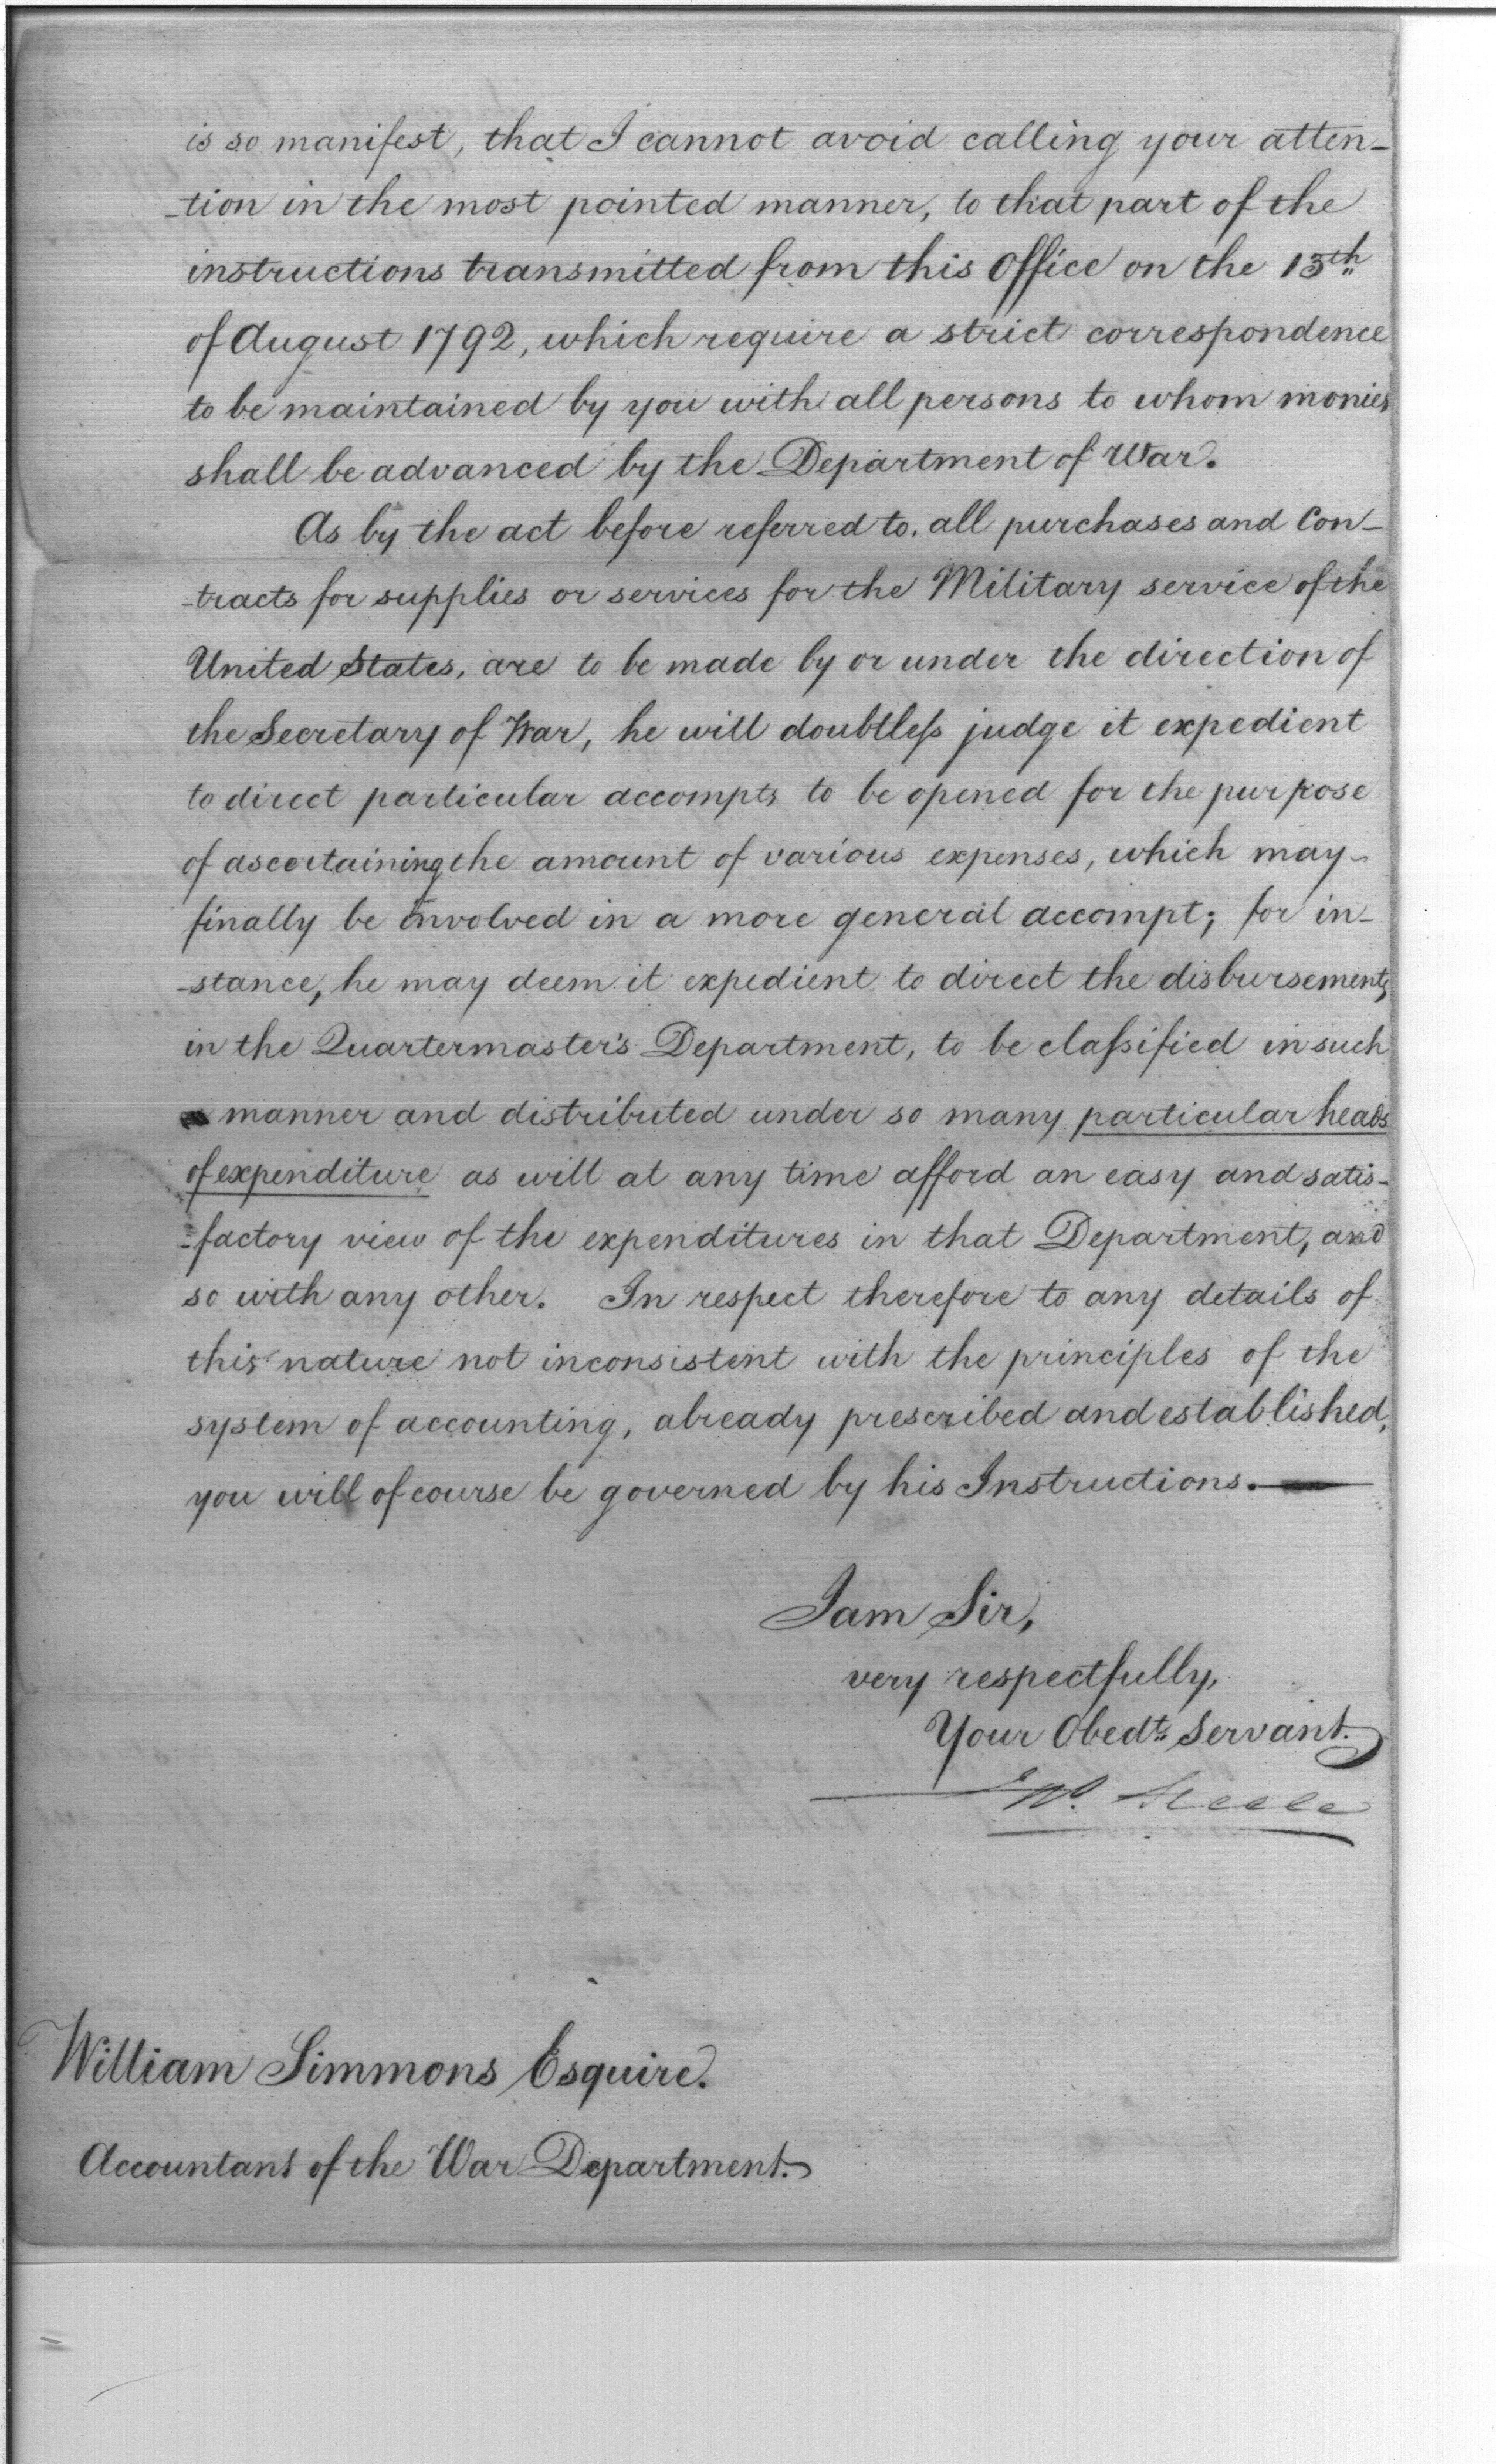 is so manifest, that I cannot avoid calling your atten-
-tion in the most pointed manner, to that part of the
instructions transmitted from this Office on the 13th
of August 1792, which require a strict correspondence
to be maintained by you with all persons to whom monies
shall be advanced by the Department of War.
As by the act before referred to, all purchases and Con-
-tracts for supplies or services for the Military service of the
United States, are to be made by or under the direction of
the Secretary of War, he will doubtless judge it expedient
to direct particular accompts to be opened for the purpose
of ascertaining the amount of various expenses, which may
finally be involved in a more general accompt; for in-
-stance, he may deem it expedient to direct the disbursements
in the Quartermaster's Department, to be classified in such
a manner and distributed under so many particular heads
of expenditure as will at any time afford an easy and satis-
-factory view of the expenditures in that Department, and
so with any other. In respect therefore to any details of
this nature not inconsistent with the principles of the
system of accounting, already prescribed and established,
you will of course be governed by his Instructions.
I am Sir,
very respectfully,
Your Obedt. Servant.
Jno. Steele
William Simmons Esquire.
Accountant of the War Department.